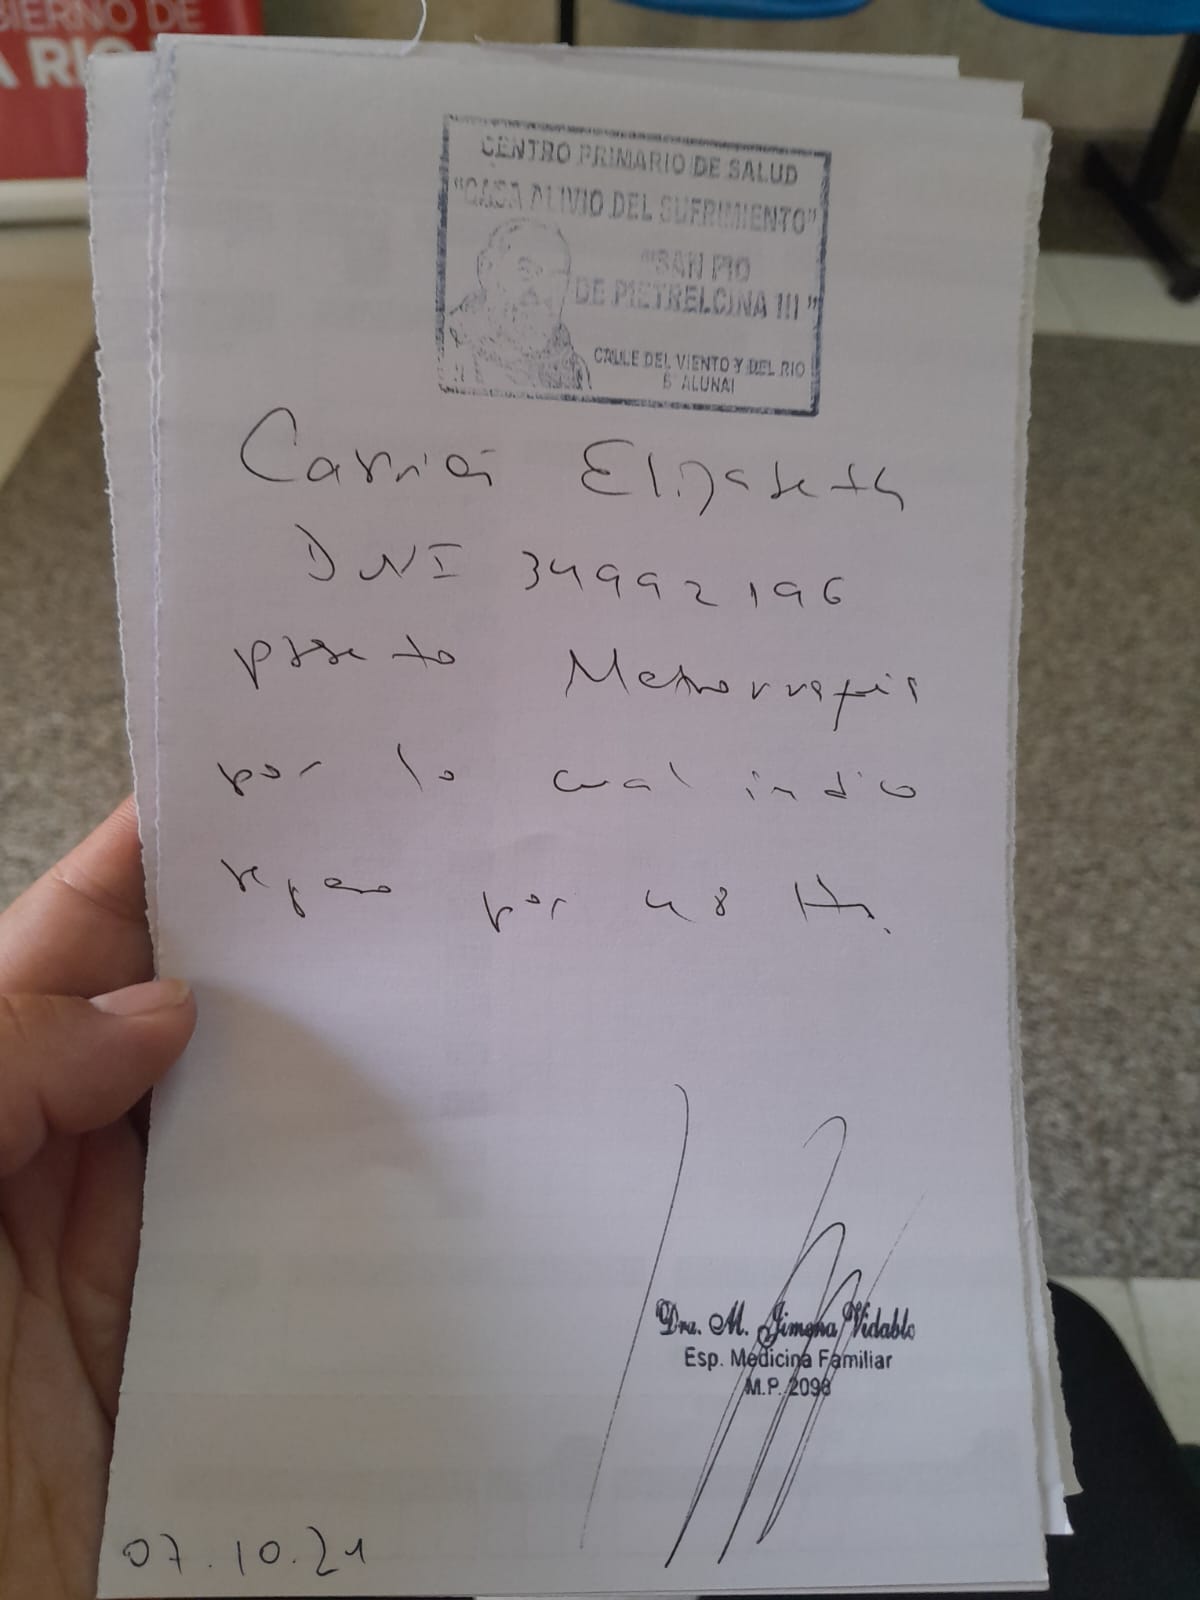 BIERNO DE
A RIO
CENTRO PRIMARIO DE SALUD
"CASA ALIVIO DEL SUFRIMIENTO"
"SAN PIO
DE PIETRELCINA III"
CALLE DEL VIENTO Y DEL RIO
Bº ALUNAI
Carrión Elizabeth
DNI 34992196
presento Metrorragia
por lo cual indico
reposo por 48 Hs.
Dra. M. Jimena Vidable
Esp. Medicina Familiar
M.P. 2098
07.10.21